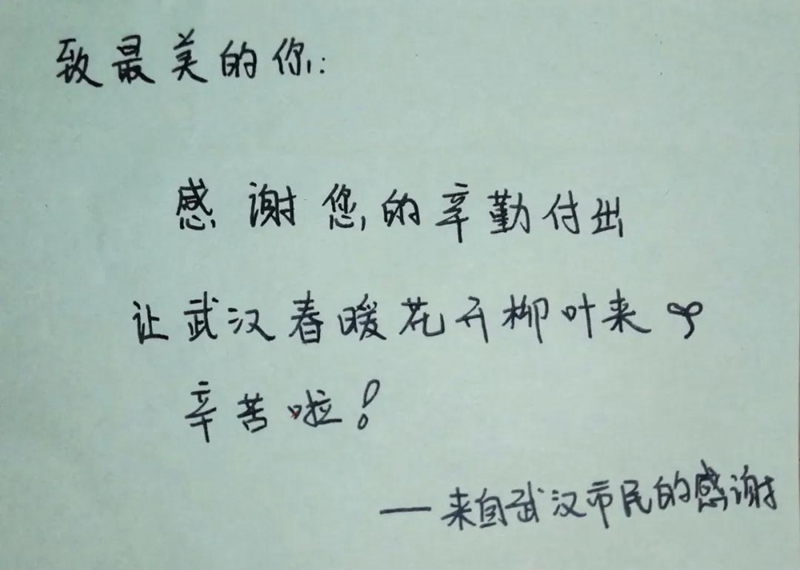 致最美的你:
感谢您的辛勤付出
让武汉春暖花开柳叶来
辛苦啦!
——来自武汉市民的感谢